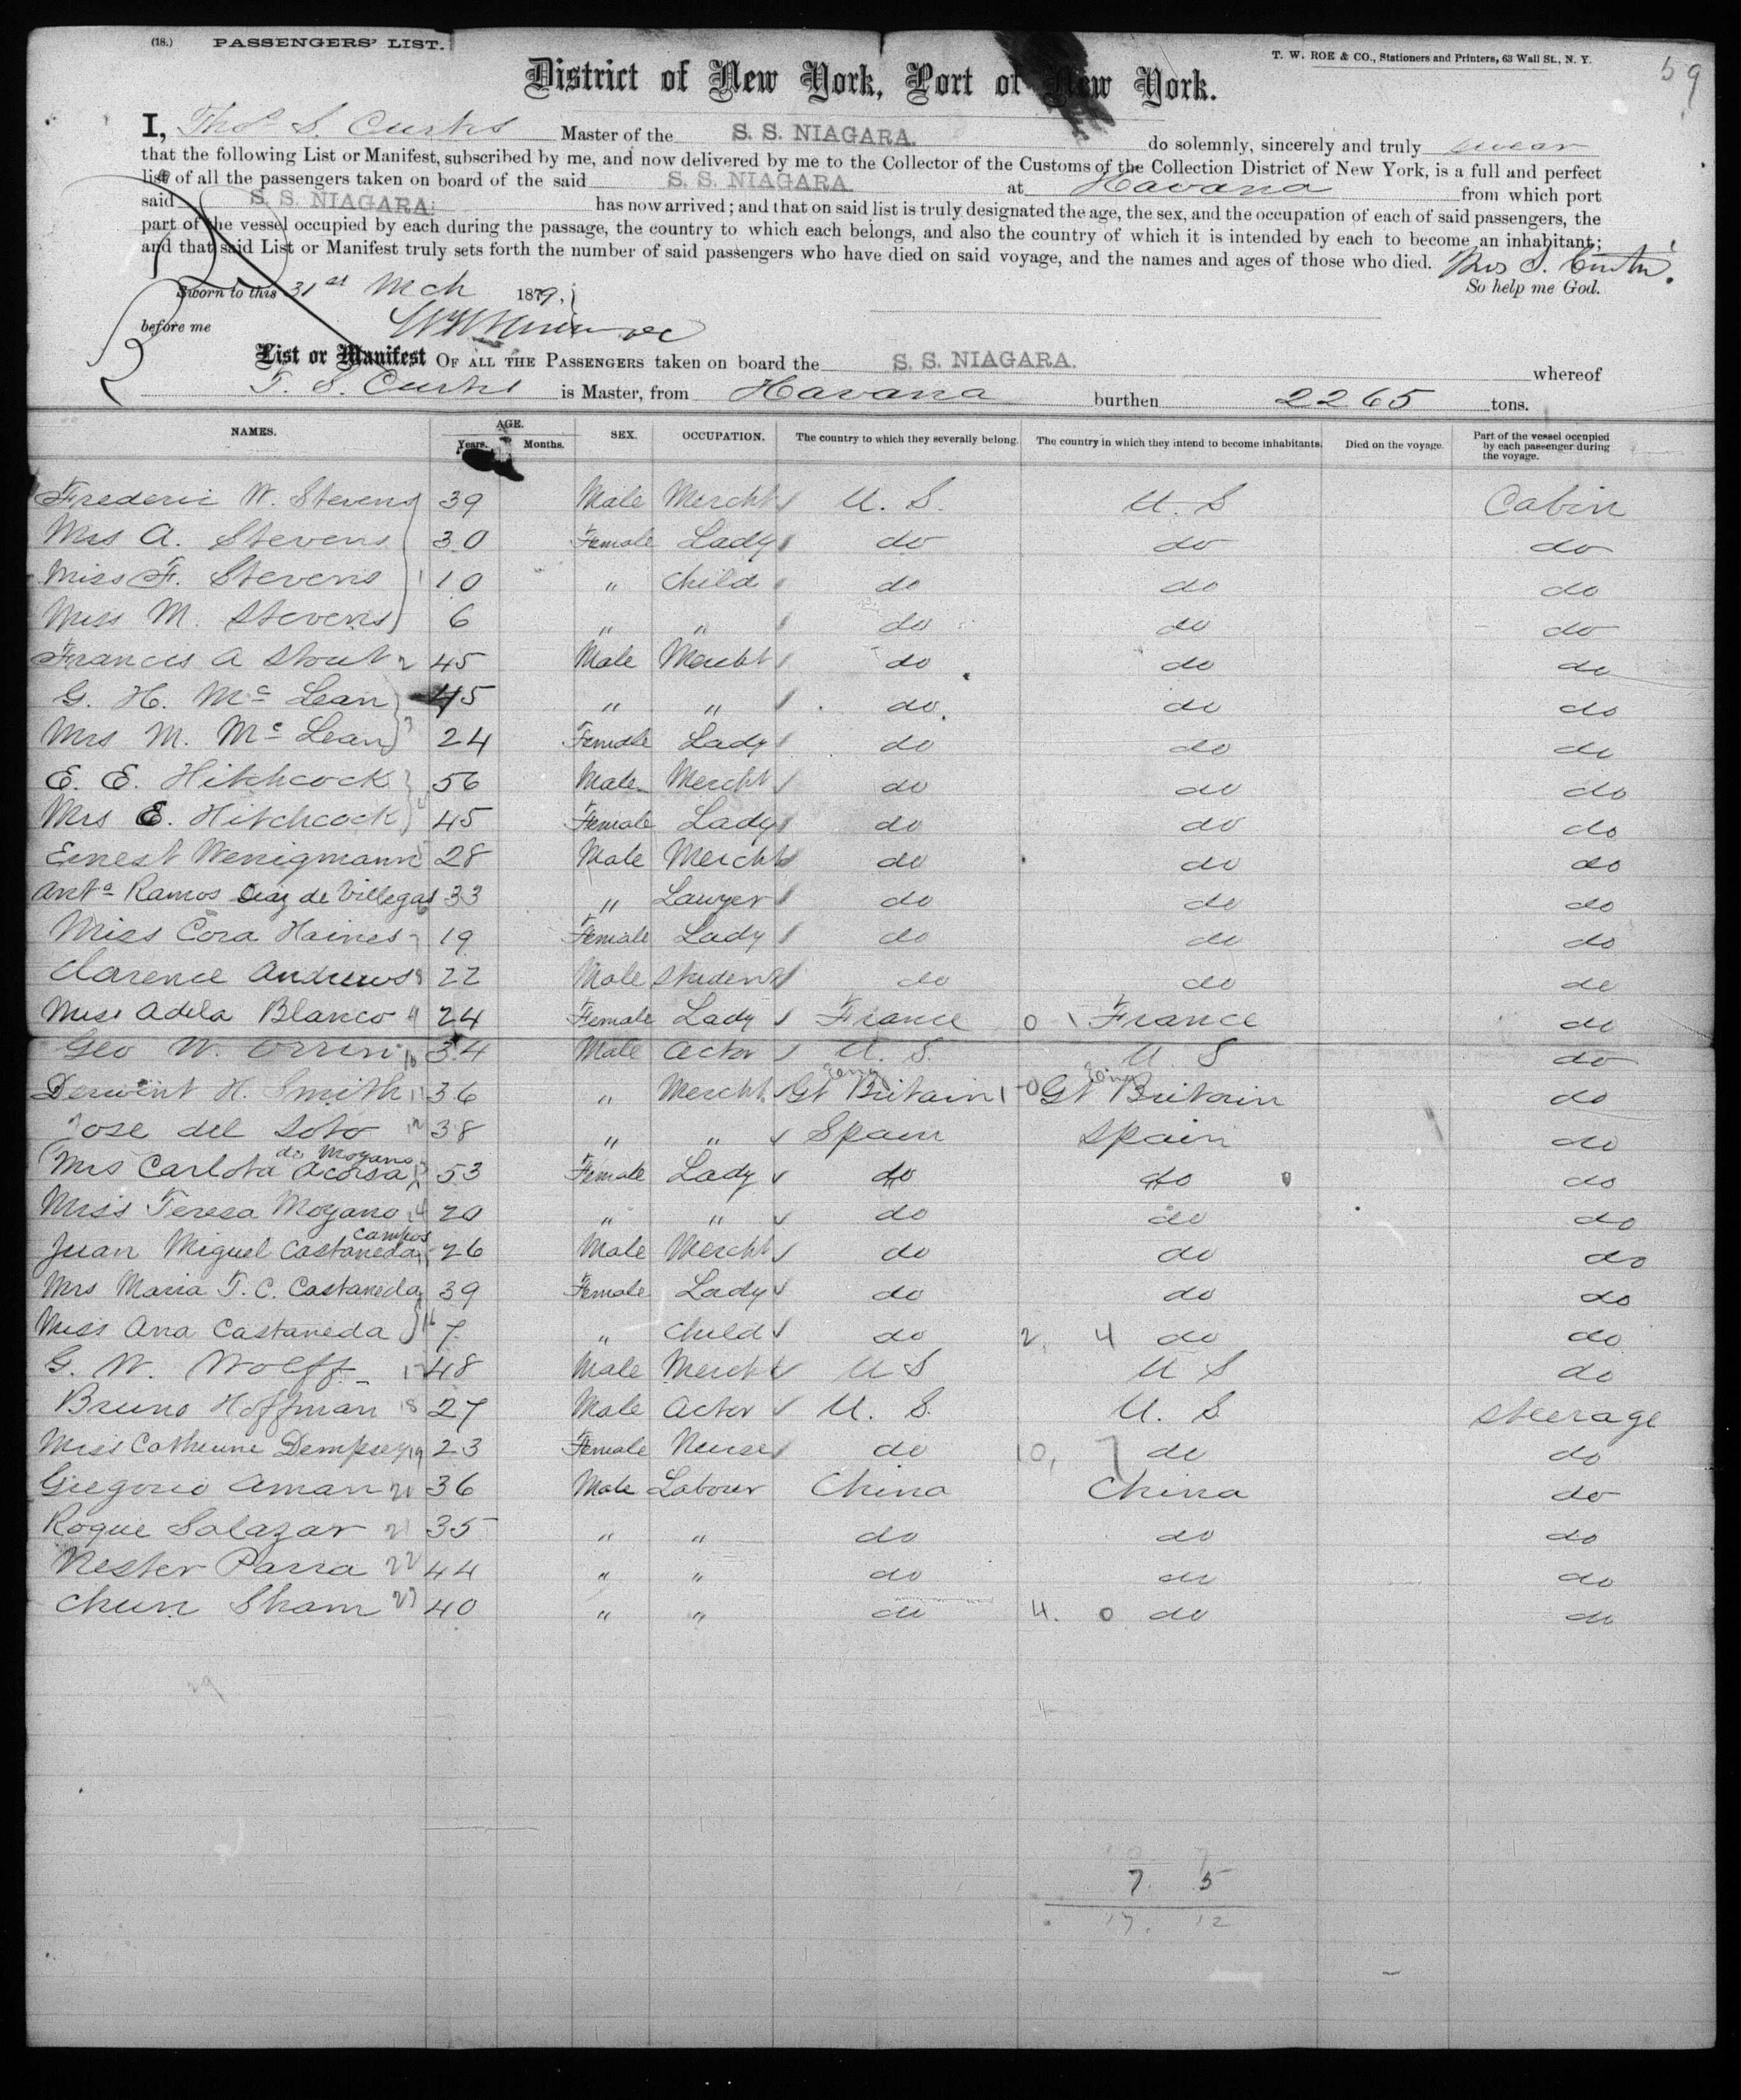 (18.) PASSENGERS' LIST.
T. W. ROE & CO., Stationers and Printers, 63 Wall St., N. Y.
59
District of New York, Port of New York.
I, Thos S. Curtis Master of the S. S. NIAGARA. do solemnly, sincerely and truly swear
that the following List or Manifest, subscribed by me, and now delivered by me to the Collector of the Customs of the Collection District of New York, is a full and perfect
list of all the passengers taken on board of the said S. S. NIAGARA at Havana from which port
said S. S. NIAGARA. has now arrived; and that on said list is truly designated the age, the sex, and the occupation of each of said passengers, the
part of the vessel occupied by each during the passage, the country to which each belongs, and also the country of which it is intended by each to become an inhabitant;
and that said List or Manifest truly sets forth the number of said passengers who have died on said voyage, and the names and ages of those who died. Thos S. Curtis.
Sworn to this 31st Mch 1879, So help me God.
before me
List or Manifest OF ALL THE PASSENGERS taken on board the S. S. NIAGARA. whereof
T. S. Curtis is Master, from Havana burthen 2265 tons.
NAMES. AGE. Years. Months. SEX. OCCUPATION. The country to which they severally belong. The country in which they intend to become inhabitants. Died on the voyage. Part of the vessel occupied by each passenger during the voyage.
Frederic W. Stevens 39 Male Mercht U. S. U. S Cabin
Mrs A. Stevens 30 Female Lady do do do
Miss F. Stevens 1 10 " Child do do do
Miss M. Stevens 6 " " do do do
Frances A Stout 2 45 Male Mercht do do do
G. H. Mc Lean 45 " " do do do
Mrs M. Mc Lean 3 24 Female Lady do do do
E. E. Hitchcock 56 Male Mercht do do do
Mrs E. Hitchcock 4 45 Female Lady do do do
Ernest Wenigmann 5 28 Male Mercht do do do
Anta Ramos Diaz de Villegas 6 33 " Lawyer do do do
Miss Cora Haines 7 19 Female Lady do do do
Clarence Andrews 8 22 Male Student do do do
Miss Adela Blanco 9 24 Female Lady France 0 1 France do
Geo W. Orrin 10 34 Male Actor U. S. U S do
Derwent H. Smith 11 36 " Mercht Gt Britain 1 0 Gt Britain do
Jose del Soto 12 38 " " Spain Spain do
de Moyano
Mrs Carlota Acorsa 13 53 Female Lady do do do
Miss Teresa Moyano 14 20 " " do do do
Campos
Juan Miguel Castaneda 15 26 Male Mercht do do do
Mrs Maria T. C. Castaneda 39 Female Lady do do do
Miss Ana Castaneda 16 7 " Child do 2, 4 do do
G. W. Wolff 17 48 Male Mercht U S U S do
Bruno Hoffman 18 27 Male Actor U. S. U. S steerage
Miss Catherine Dempsey 19 23 Female Nurse do 10, 7 do do
Gregorio Aman 20 36 Male Labour China China do
Roque Salazar 21 35 " " do do do
Nester Parra 22 44 " " do do do
Chun Sham 23 40 " " do 4. 0 do do
29
10 7
7. 5
17. 12